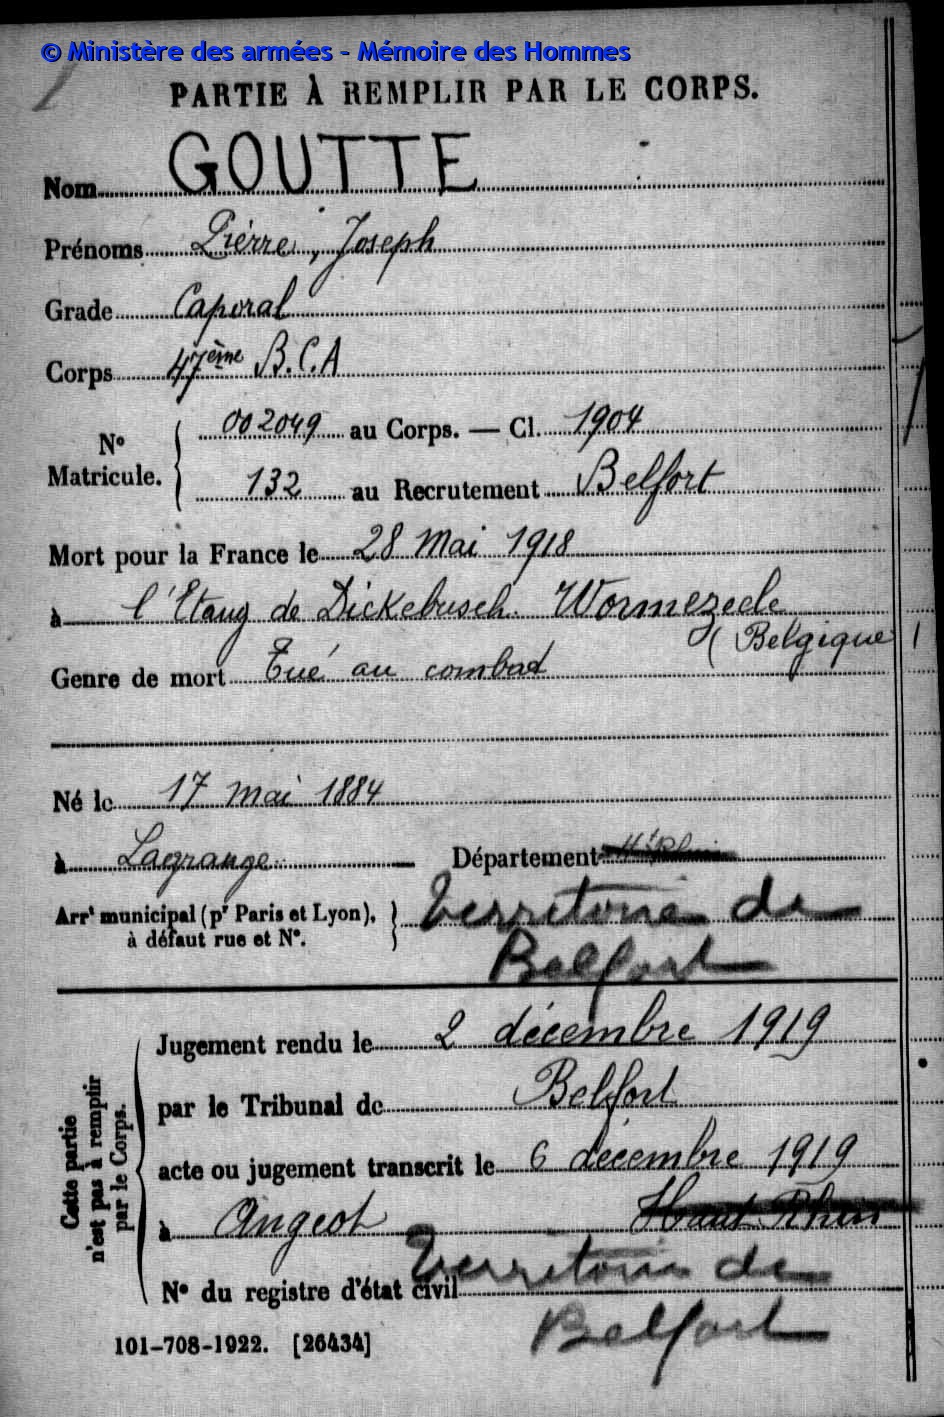 © Ministère des armées - Mémoire des Hommes
PARTIE À REMPLIR PAR LE CORPS.
Nom GOUTTE
Prénoms Pierre, Joseph
Grade Caporal
Corps 47ème B.C.A
N° Matricule. 002049 au Corps. — Cl. 1904
132 au Recrutement Belfort
Mort pour la France le 28 Mai 1918
à l'Etang de Dickebusch. Wormezeele
(Belgique)
Genre de mort Tué au combat
Né le 17 mai 1884
à Lagrange Département Ht Rhin
Arrt municipal (pr Paris et Lyon), à défaut rue et N°. Territoire de
Belfort
Cette partie n'est pas à remplir par le Corps.
Jugement rendu le 2 décembre 1919
par le Tribunal de Belfort
acte ou jugement transcrit le 6 décembre 1919
à Angeot Haut Rhin
Territoire de
N° du registre d'état civil
Belfort
101-708-1922. [26434]